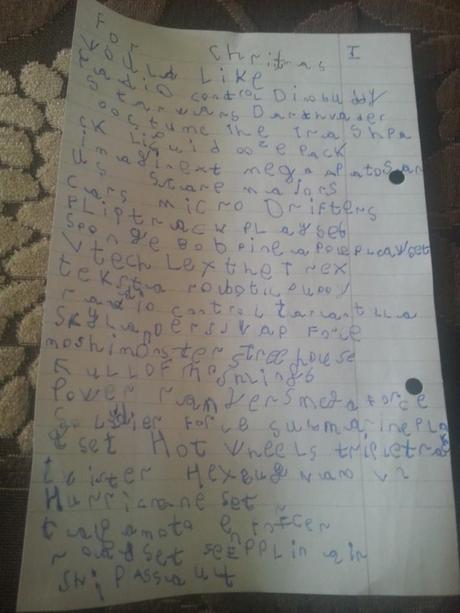 For Chritmas I
Would Like
radio control Dinbuddy
starwars Darkhvader
costume the trashpa
ck liquid ooze pack
imaginext megaapatosaur
us Scare majors
cars micro Drifters
fliptrack playset
Spongebob pineapoleplayset
Vtech Lex the Trex
teksta robotic puppy
radio control tarantula
Skylandersswap force
moshimonster treehouse
Power rangers megaforce
soldier force submarinepla
yset Hot wheels tripletra
twister Hexbug nano v2
Hurricane set
roadset seppлin air
shi passaut